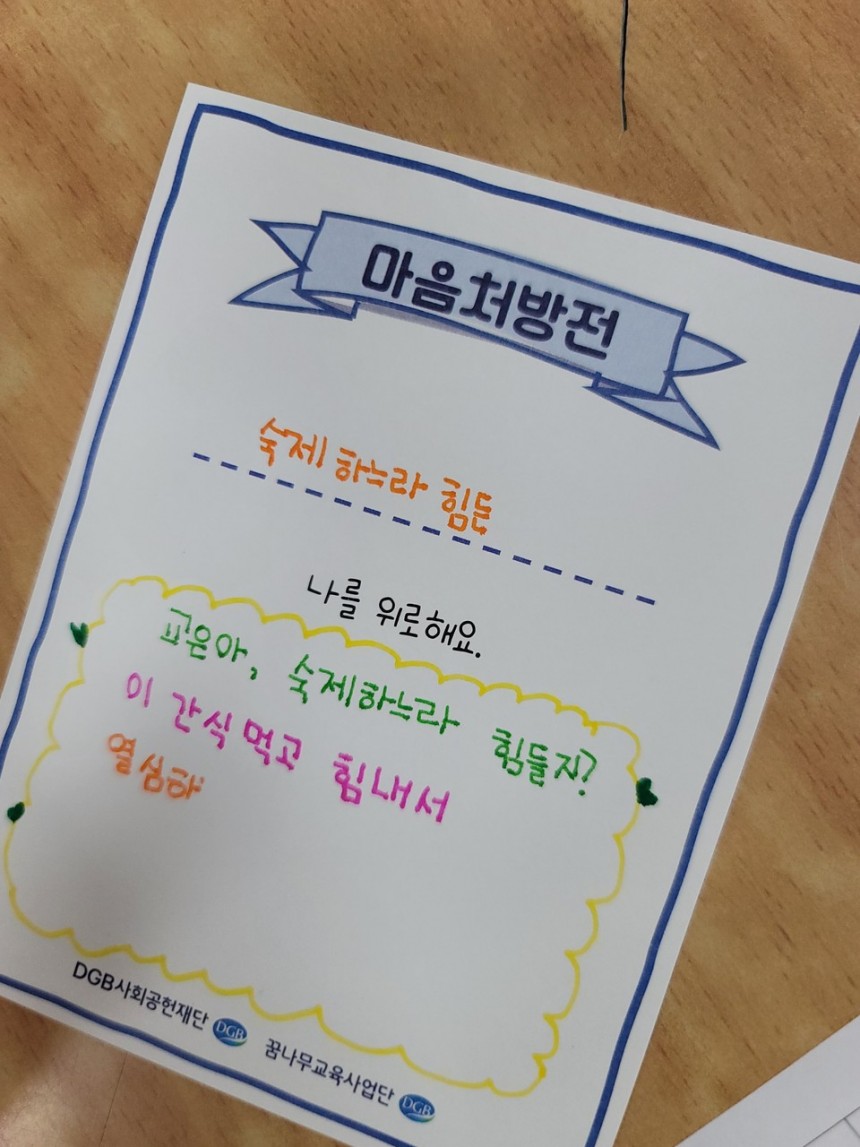 마음처방전
숙제 하느라 힘든
나를 위로해요.
교은아, 숙제하느라 힘들지?
이 간식 먹고 힘내서
열심히
DGB사회공헌재단 DGB
꿈나무교육사업단 DGB